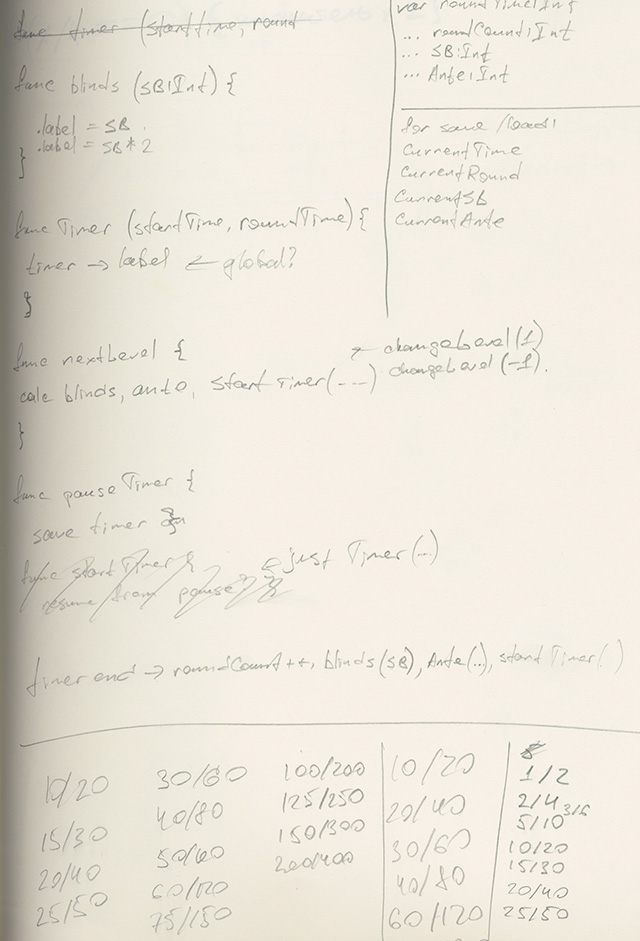 func timer (starttime, round
func blinds (SB:Int) {
.label = SB
.label = SB * 2
}
func Timer (startTime, roundTime) {
timer → label ← global?
}
func nextLevel {
← changeLevel(1)
changeLevel(-1).
calc blinds, ante, startTimer(---)
}
func pauseTimer {
save timer }
func startTimer {
← just Timer(...)
resume from pause }
timer end → roundCount++, blinds(SB), Ante(...), startTimer()
var roundTime:Int
... roundCount:Int
... SB:Int
... Ante:Int
for save /load:
CurrentTime
CurrentRound
CurrentSb
CurrentAnte
10/20
15/30
20/40
25/50
30/60
40/80
50/60
60/120
75/150
100/200
125/250
150/300
200/400
10/20
20/40
30/60
40/80
60/120
1/2
2/4
3/6
5/10
10/20
15/30
20/40
25/50